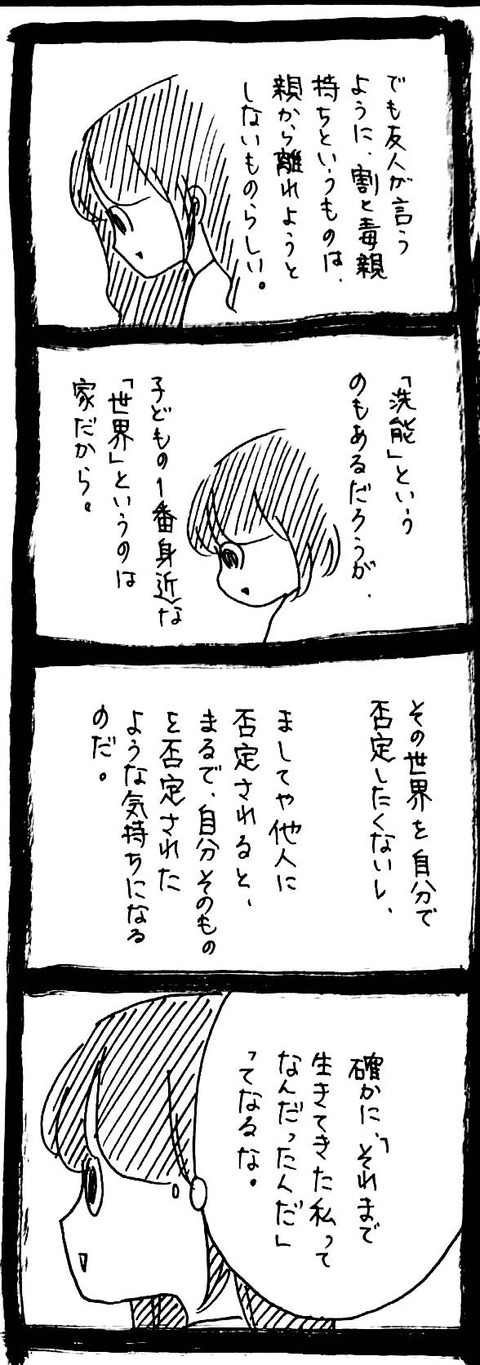 でも友人が言う
ように、割と毒親
持ちというものは、
親から離れようと
しないものらしい。
「洗能」という
のもあるだろうが、
子どもの1番身近な
「世界」というのは
家だから。
その世界を自分で
否定したくないし、
ましてや他人に
否定されると、
まるで、自分そのもの
を否定された
ような気持ちになる
のだ。
確かに、「それまで
生きてきた私って
なんだったんだ」
ってなるな。